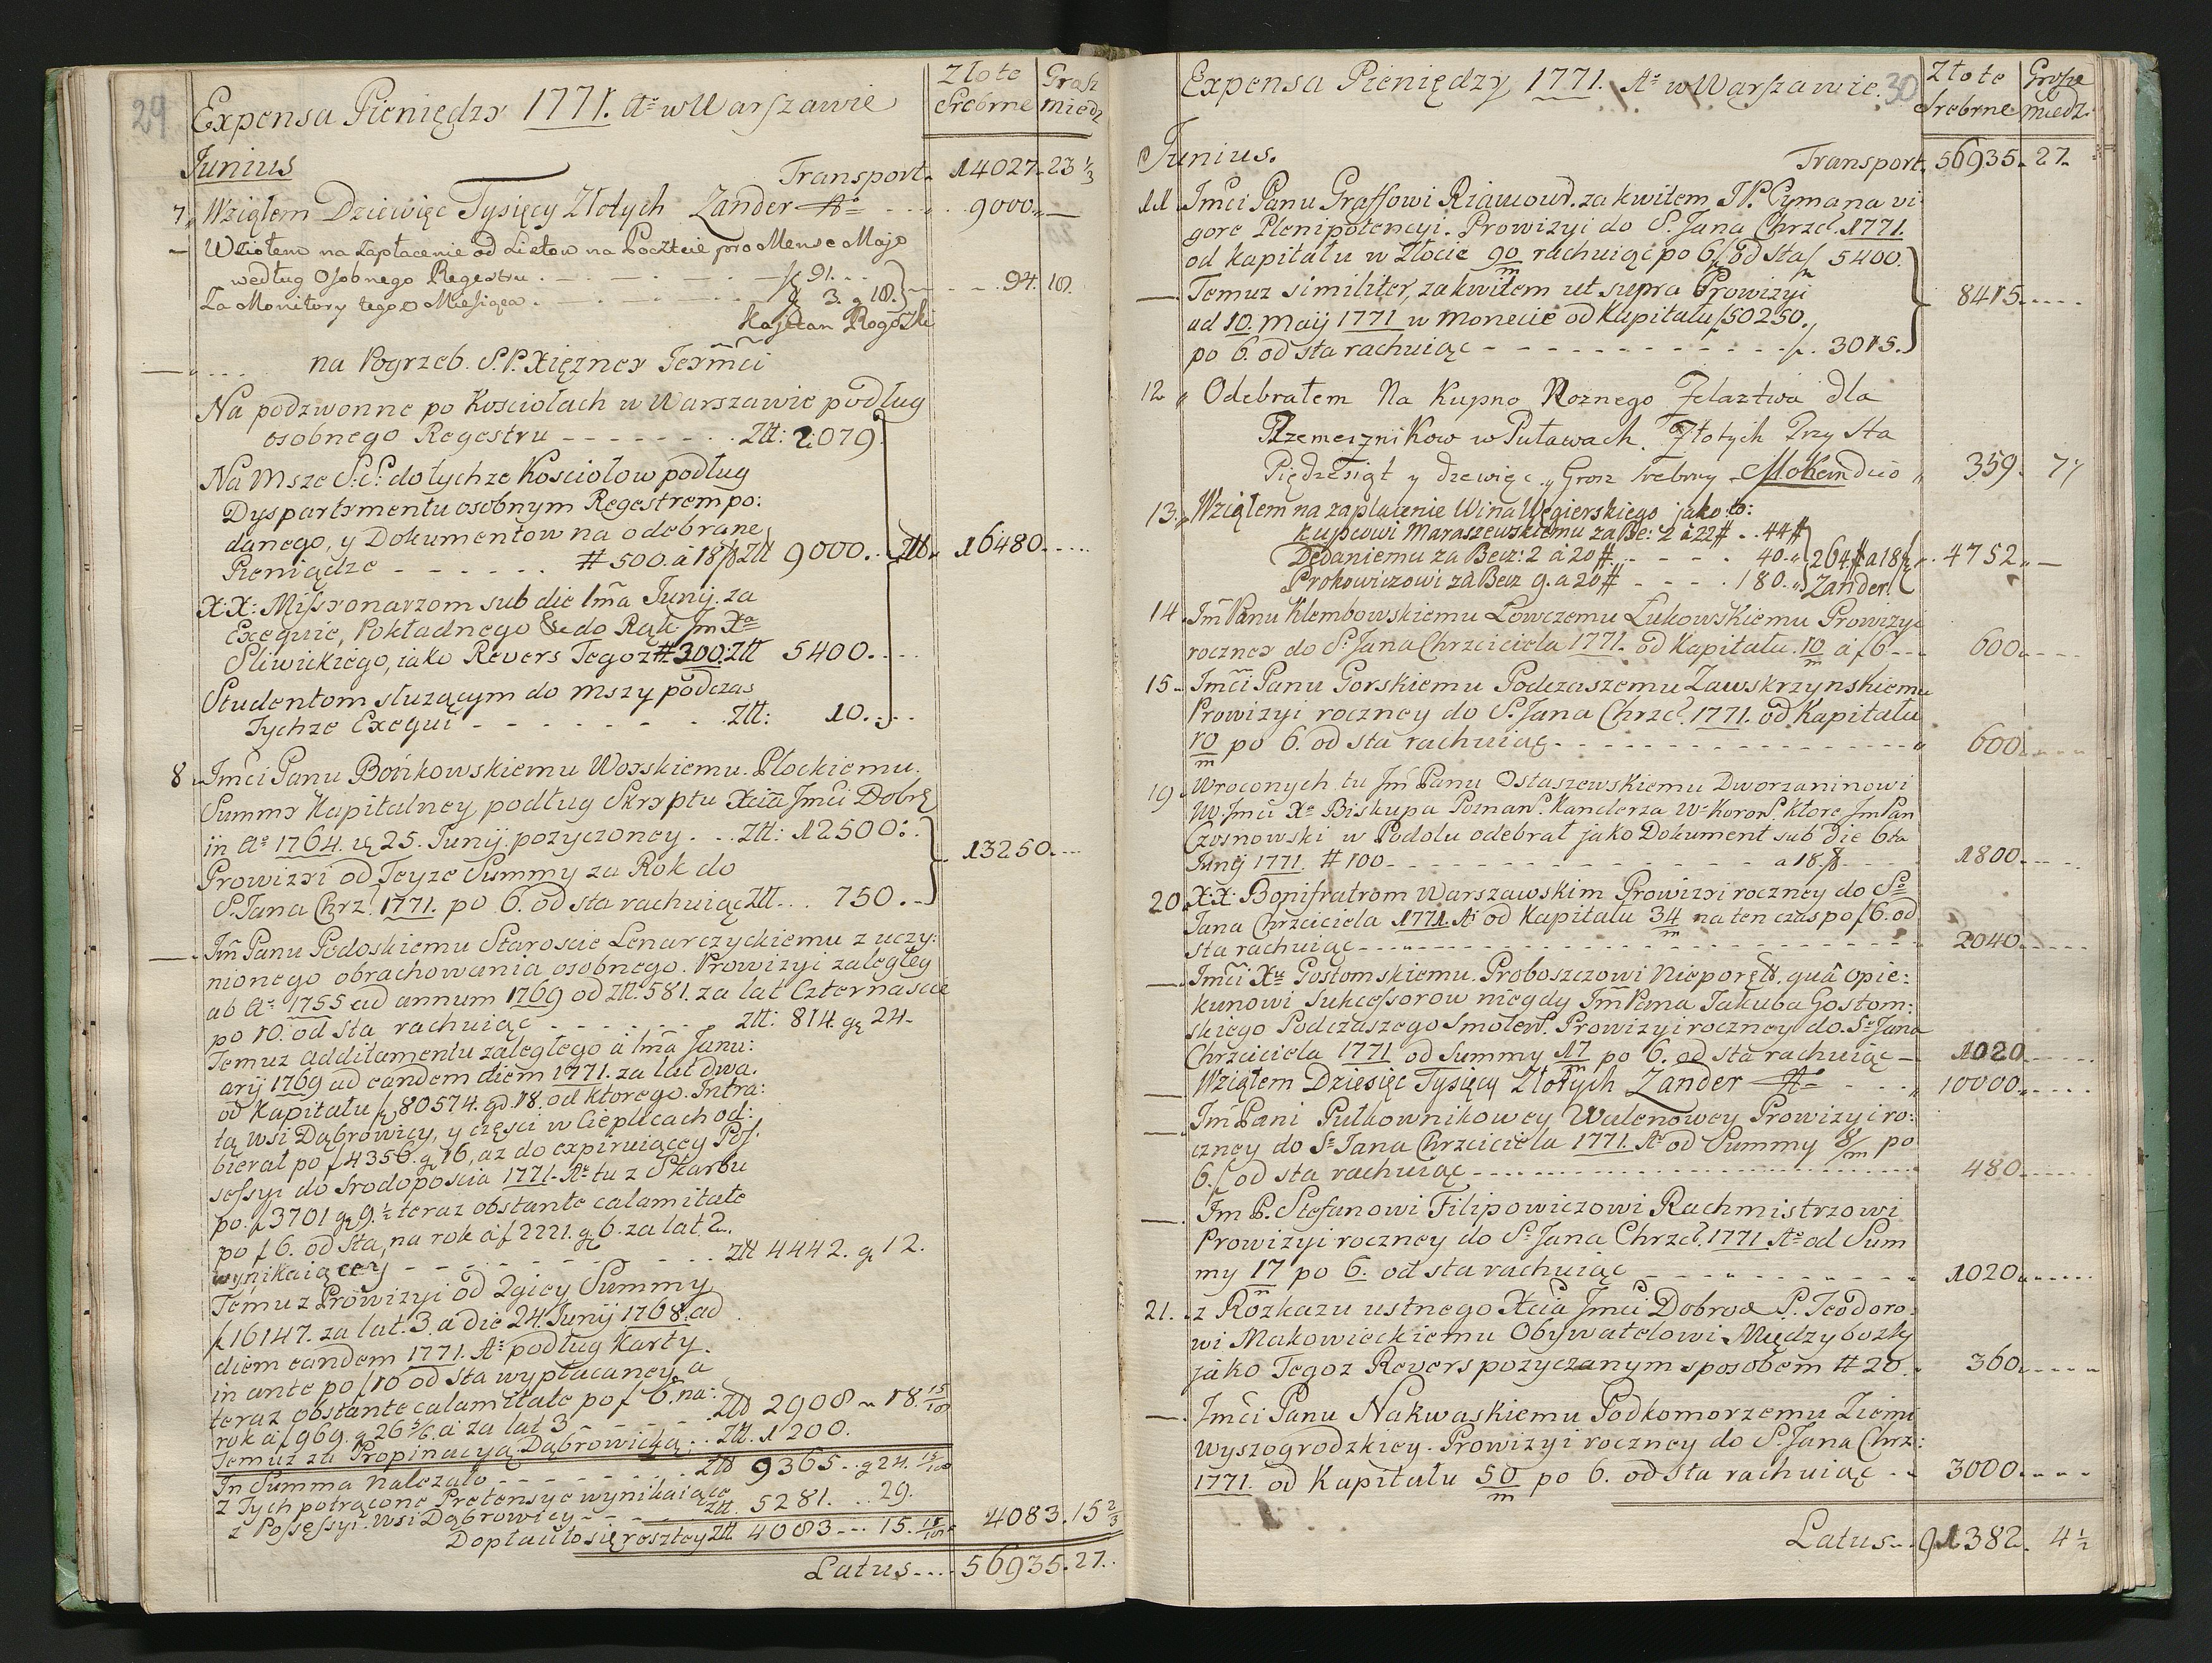 29
Expensa Pieniędzy 1771. Aº w Warszawie
Złote Srebrne
Grosz miedz
Junius
Transport. 14027. 23 1/3
7 Wziąłem Dziewięć Tysięcy Złotych Zander Aº 9000. —
— Wziołem na zapłacenie od Listow na Poczcie pro Mense Majo
według Osobnego Regestru f 91.
Za Monitory tego Miesiąca f 3. g 18. 94. 18.
Kajetan Rogoski
na Pogrzeb. S.P. Xiężney Jeymci
Na podzwonne po Kosciołach w Warszawie podług
osobnego Regestru Złł: 2079.
Na Msze S.S. do tychze Kosciołow podług
Dyspartymentu osobnym Regestrem po:
danego, y Dokumentow na odebrane
Pieniądze # 500. à 18 f Złł 9000. Złł 16480.
X:X: Missyonarzom sub die 1ma Junij za
Exequie, Pokładnego & do Rąk Jm Xa
Sliwickiego, iako Revers Tegoz # 300. Złł 5400.
Studentom służącym do mszy podczas
Tychze Exequi Złł: 10.
8 Jmci Panu Bońkowskiemu Woyskiemu Płockiemu.
Summy Kapitalney podług Skryptu Xcia Jmci Dobrę
in Aº 1764. 25. Junij pozyczoney Złł: 12500.
Prowizyi od Teyze Summy za Rok do
S. Jana Chrz. 1771. po 6. od sta rachuiąc Złł 750. 13250.
— Jm Panu Podoskiemu Staroscie Lenarczyckiemu z uczy:
nionego obrachowania osobnego. Prowizyi zaległey
ab Aº 1755 ad annum 1769 od Złł. 581. za lat Czternascie
po 10. od sta rachuiąc Złł: 814. g 24.
Temuz additamentu zaległego à 1ma Janu:
arij 1769 ad eandem diem 1771. za lat dwa.
od Kapitału f 80574. g. 18. od ktorego. Intra:
tą wsi Dąbrowicy, y częsci w Cieplicach od:
bierał po f 4356. g 16, az do expiruiącey Pos:
sessyi do Srodoposcia 1771. Aº tu z Skarbu
po f 3701 g 9. 1/2 teraz obstante calamitate
po f 6. od sta, na rok à f 2221. g 6. za lat 2.
wynikaiącey Złł 4442. g 12.
Temuz Prowizyi od 2giey Summy
f 16147. za lat. 3. a die 24. Junij 1768. ad
diem eandem 1771. Aº podług Karty.
in ante po f 10 od sta wypłacaney, a
teraz obstante calamitate po f 6. na:
rok à f 969. g 26 5/6. a za lat 3 Złł 2908 18. 15/10
Temuz za Propinacyą Dąbrowicką Złł. 1200.
In Summa nalezało Złł 9365. g 24.
Z Tych potrącone Pretensye wynikaiące
z Possessyi wsi Dąbrowicy Złł 5281. 29.
Dopłaciło się reszty Złł 4083. 15. 4083. 15 2/3
Latus 56935. 27.
30
Expensa Pieniędzy 1771. Aº w Warszawie.
Złote Srebrne
Grosze miedz:
Junius.
Transport. 56935. 27.
11 Jmci Panu Graffowi Riaucourd. za kwitem JP. Cymana vi
gore Plenipotencyi. Prowizyi do S. Jana Chrzc. 1771.
od Kapitału w złocie 90/m rachuiąc po 6 f od sta f 5400.
— Temuz similiter, za kwitem ut supra Prowizyi
ad 10. Maij 1771 w monecie od Kapitału f 50250.
po 6. od sta rachuiąc f. 3015. 8415.
12 Odebrałem Na Kupno Roznego Zelaztwa dla
Rzemeiznikow w Puławach. Złotych Trzy sta
Piędzesiąt y dzewięc Grosz srebrny 359. 7
13. Wziąłem na zapłacenie Wina Węgierskiego jako to:
Kupcowi Maraszewskiemu za Be: 2 à 22 # 44 #
Dedaniemu za Becz: 2 à 20 # 40. 264 # a 18 f 4752. —
Prokowiczowi za Becz 9. a 20 # 180. Zander
14 Jm Panu Klembowskiemu Łowczemu Łukowskiemu Prowizyi
roczney do S. Jana Chrzciciela 1771. od Kapitału. 10/m à f 6 600.
15 Jmci Panu Gorskiemu Podczaszemu Zawskrzynskiemu
Prowizyi roczney do S. Jana Chrzc. 1771. od Kapitału
10/m po 6. od sta rachuiąc 600.
19 Wroconych tu Jm Panu Ostaszewskiemu Dworzaninowi
W. Jmci Xa Biskupa Poznan. Kanclerza W. Koron. ktore Jm Pan
Czosnowski w Podolu odebrał jako Dokument sub die 6ta
Junij 1771. # 100 a 18. f 1800.
20 X:X: Bonifratrom Warszawskim Prowizyi roczney do Sº
Jana Chrzciciela 1771. Aº od Kapitału 34/m na ten czas po f 6. od
sta rachuiąc 2040.
— Jmci Xu Gostomskiemu. Proboszczowi Nieporęt. quâ opie:
kunowi Sukcessorow niegdy Jm Pana Jakuba Gostom:
skiego Podczaszego Smoleń. Prowizyi roczney do. S. Jana
Chrzciciela 1771 od Summy 17/m po 6. od sta rachuiąc 1020.
— Wziąłem Dziesięc Tysięcy Złotych Zander Aº 10000.
— Jm Pani Pułkownikowey Walenowey Prowizyi ro:
czney do S. Jana Chrzciciela 1771. Aº od Summy 8/m po
6. f od sta rachuiąc 480.
— Jm P. Stefanowi Filipowiczowi Rachmistrzowi
Prowizyi roczney do S. Jana Chrzc. 1771 Aº od Sum
my 17/m po 6. od sta rachuiąc 1020.
21. z Rozkazu ustnego Xcia Jmci Dobroę P. Teodoro:
wi Makowieckiemu Obywatelowi Międzybozky
jako Tegoz Revers pozyczanym sposobem # 20. 360.
— Jmci Panu Nakwaskiemu Podkomorzemu Ziemi
wyszogrodzkiey. Prowizyi roczney do S. Jana Chrz:
1771. od Kapitału 50/m po 6. od sta rachuiąc 3000.
Latus 91382. 4 1/2